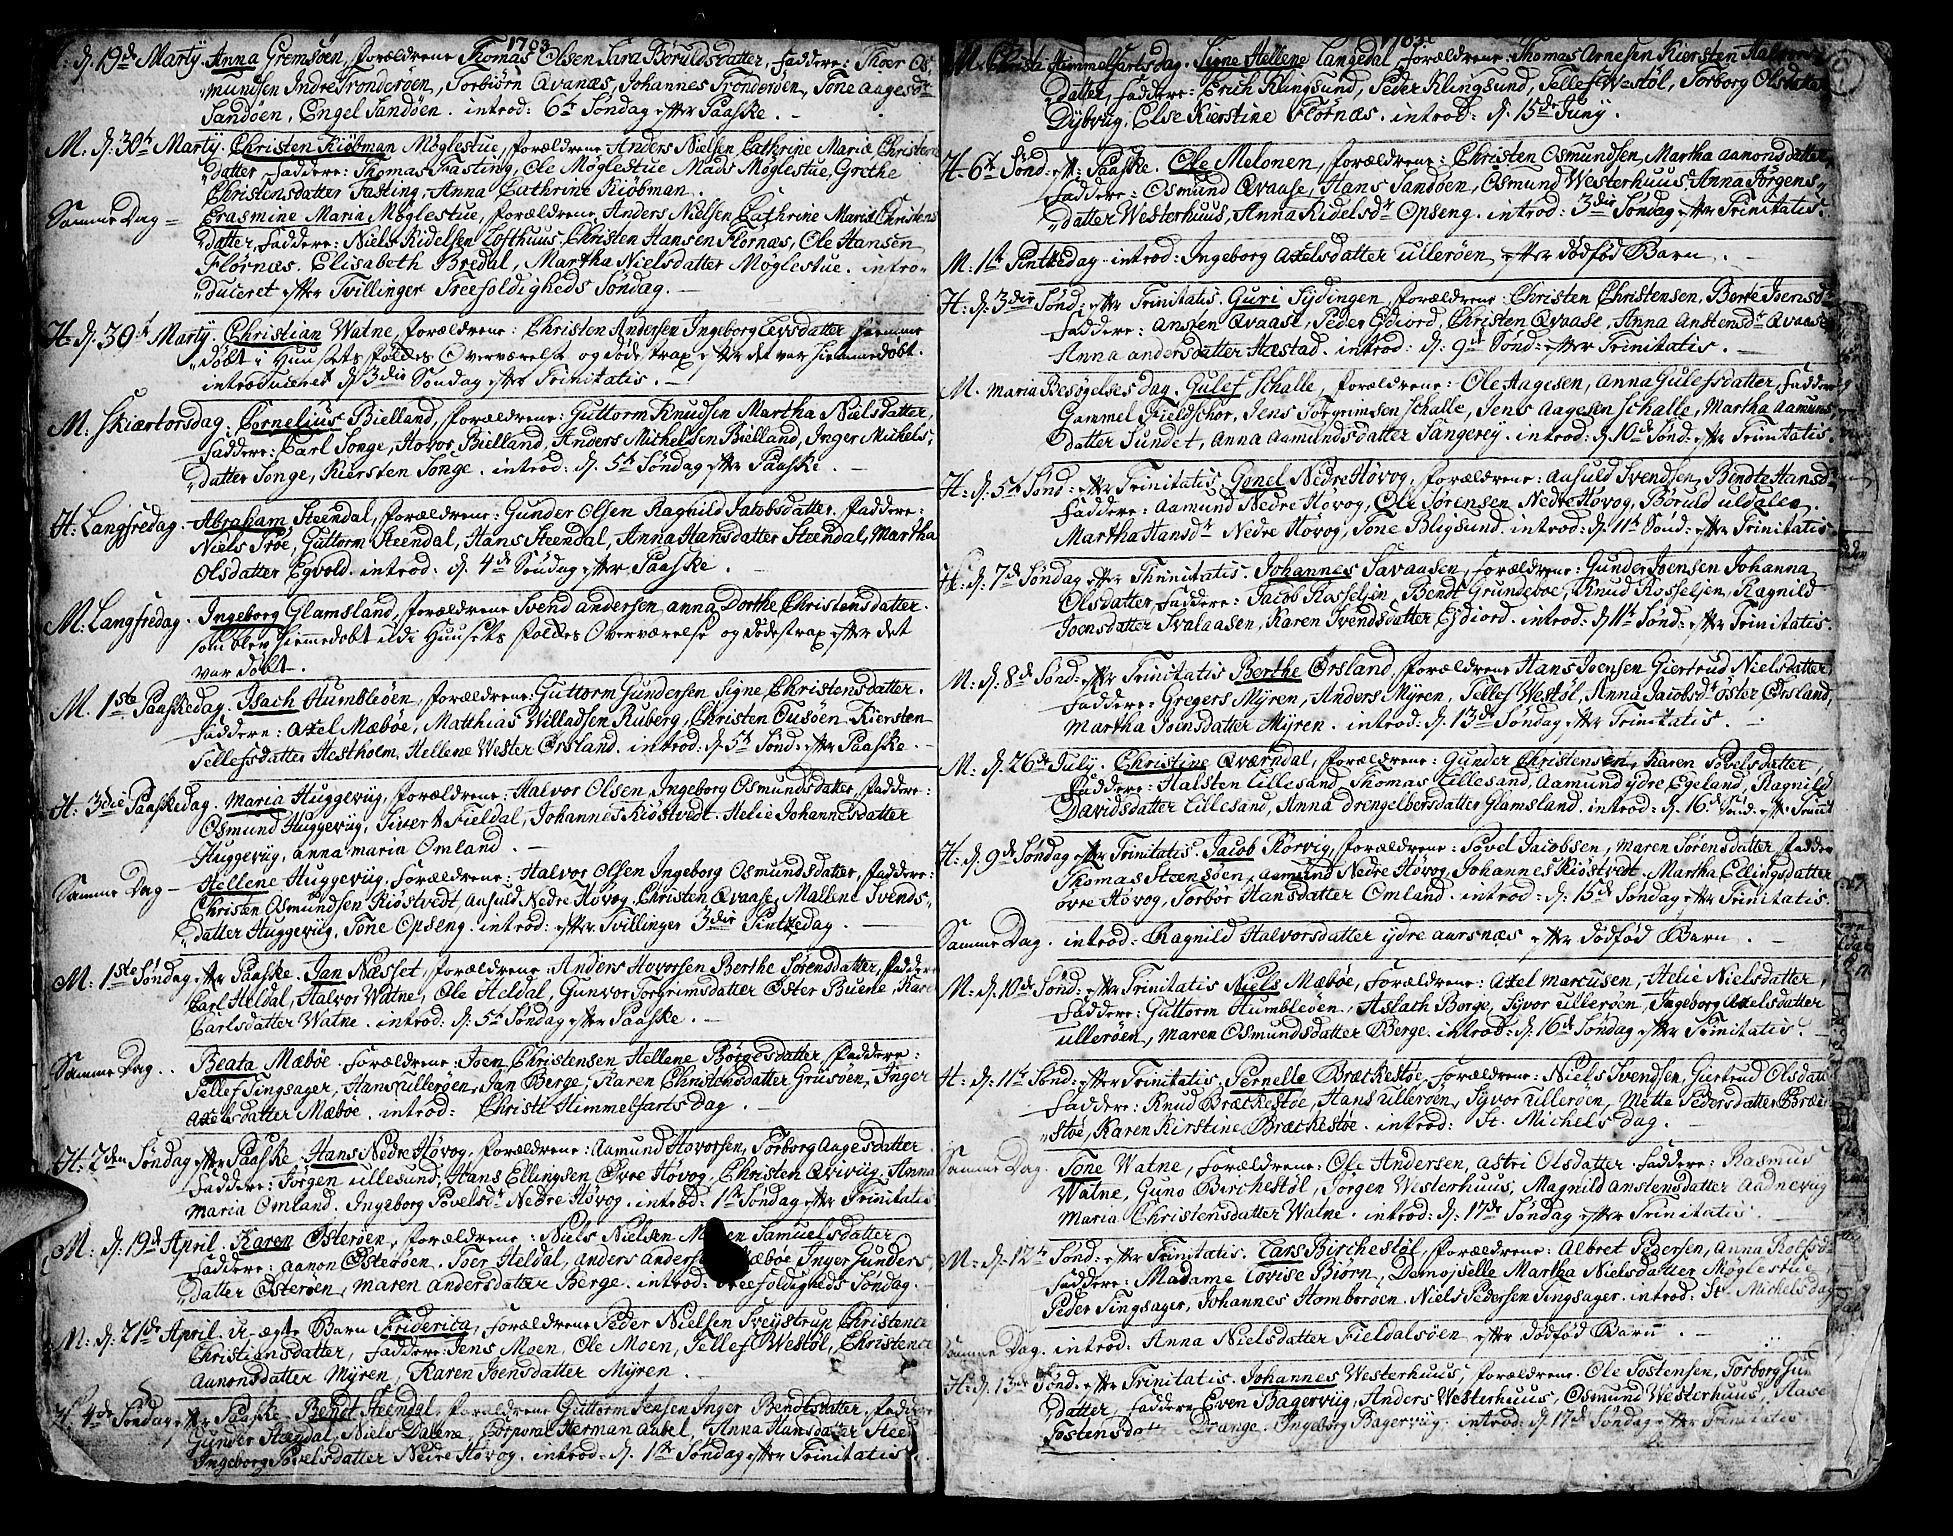 1763
d. 19de Martÿ. Anna Gremsöen, forældrene Thomas Olsen Sara Böruldsdatter, Faddere: Thoer Os„
mundsen Indre Tronderöen, Torbiörn Qvanæs, Johannes Tronderöen, Tone Aagesdtr
Sandöen, Engel Sandöen. introd: 6te Söndag efter Paaske.
M. d. 30te Martÿ. Christen Kiöbman Möglestue, forældrene Anders Nielsen Cathrine Marie Christens
„datter, Faddere: Thomas Fasting, Ole Möglestue Mads Möglestue, Grethe
Christensdatter Fasting, Anna Cathrine Kiöbman.
Samme Dag = Erasmine Maria Möglestue, forældrene, Anders Nielsen Cathrine Marie Christens
„datter, Faddere: Niels Ridelsen Lofthuus, Christen Hansen Flörnæs, Ole Hansen
Flörnæs. Elisabeth Bredal, Martha Nielsdatter Möglestue. intro„
„duceret efter Tvillinger Treefoldigheds Söndag.
H. d. 30te Martÿ. Christian Watne, forældrene: Christen Andersen Ingeborg Levsdatter hiemme
„döbt i Huusets folkes Overværelse og döde strax efter det var hiemmedöbt.
introduceret d. 3die Söndag efter Trinitatis.
M. Skiærtorsdag. Cornelius Bielland, forældrene: Guttorm Knudsen Martha Nielsdatter,
Faddere: Carl Songe, Hovor Bielland, Anders Michelsen Bielland, Inger Mickels„
„datter Songe, Kiersten Songe. introd: d. 5te Söndag efter Paaske.
H. Langfredag. Abraham Steendal, forældrene: Gunder Olsen Ragnild Jacobsdatter. Faddere:
Niels Troe, Guttorm Steendal, Hans Steendal, Anna Hansdatter Steendal, Martha
Olsdatter Egvold. introd: d. 4de Söndag efter Paaske.
M. Langfredag. Ingeborg Glamsland, forældrene Svend andersen, anna Dorthe Christensdatter.
som blev hiemedöbt udi Huusets folkes Overværelse og döde strax efter det
var döbt.
M. 1ste Paaskedag. Isach Humbleöen, forældrene: Guttorm Gundersen Signe Christensdatter.
Faddere: Axel Mæböe, Matthias Willadsen Ruberg, Christen Tusöen. Kiersten
Tellefsdatter Hestholm, Hellene Wester Örsland. introd: d. 5te Sönd: efter Paaske.
H. 3die Paaskedag. Maria Huggeviig, forældrene: Halvor Olsen, Ingeborg Osmundsdatter, Faddere:
Osmund Huggeviig, Sivert Fieldal, Johannes Kiöstvedt. Helie Johannesdatter
Huggeviig, anna maria Omland.
Samme Dag – Hellene Huggeviig, forældrene: Halvor Olsen Ingeborg Osmundsdatter, Faddere:
Christen Osmundsen Kiöstvedt, Ausuld Nedre Hövog, Christen Qvaase, Mallene Svends„
„datter Huggeviig, Tone Opseng. introd: efter Tvillinger 3die Pintsedag.
M: 1ste Söndag efter Paaske. Jan Næsset, forældrene: Anders Hovorsen Berthe Sörensdatter, Faddere
Carl Heldal, Halvor Watne, Ole Heldal, Gunvor Torgrimsdatter Öster Buene, Kare
Carlsdatter Watne. introd: d. 5te Söndag efter Paaske.
Samme Dag.. Beata Mæböe. Forældrene: Joen Christensen Hellene Börgesdatter, Faddere:
Tellef Tingsager, Hans Ulleröen, Jan Berge, Karen Christensdatter Grusöen, Inger
Axelsdatter Mæböe. introd: Christi Himmelfarts Dag.
H. 2den Söndag efter Paaske. Hans Nedre Hövog. forældrene: Aamund Hovorsen, Torborg Aagesdatter
Faddere: Jörgen Ullesund, Hans Ellingsen Övre Hövog, Christen Qviviig, Anna
Maria Omland. Ingeborg Povelsdtr Nedre Hövog. introd: 1ste Söndag efter Trinitatis
M: d: 19de April. Karen Österöen, forældrene: Niels Nielsen Samuelsdatter
Faddere: Aanon Österöen. Toer Heldal, anders anders Mæböe, Inger Gunders„
„datter Österöen, maren andersdatter Berge. introd: Treefoldigheds Söndag.
M: d. 21de April. U-ægte Barn Friderica, forældrene Peder Nielsen Sveÿstrup Christence
Christiansdatter, Faddere: Jens Moen, Ole Moen, Tellef Westöl, Christence
Aanonsdatter Mÿren, Karen Joensdatter Mÿren.
H. 4de Söndag efter Paaske. Bendt Steendal, forældrene Guttorm Jensen Inger Bendtsdatter, Faddere
Gunder Steendal, Niels Dalene, Corporal Herman Aabel, Anna Hansdatter Steen
Ingeborg Povelsdatter Nedre Hövog. introd: d. 1ste Söndag efter Trinitatis.
1763
M. Christi Himmelfartsdag. Signe Hellene Langedal, forældrene: Thomas Arnesen Kiersten Halvors
„datter, Faddere: Erich Klingsund, Peder Klingsund, Tellef Westöl, Torborg Olsdatter
Dÿbvug, Else Kierstine Flörnæs. introd: d. 15de Junÿ.
H. 6te Sönd: eft: Paaske. Ole Melonen, forældrene: Christen Osmundsen, Martha Aanonsdatter
Faddere: Osmund Qvaase, Hans Sandöen, Osmund Westerhuus Anna Jörgens„
„datter Westerhuus, Anna Ridelsdtr Opseng. introd: 3die Söndag efter Trinitatis.
M: 1ste Pintsedag introd: Ingeborg Axelsdatter Ulleröen efter dödföd Barn.
H. d. 3die Sönd: efter Trinitatis. Guri Sÿdingen, forældrene: Christen Christensen, Berte Joensdtr
Faddere: Ansten Qvaase, Peder Esdiord, Christen Qvaase, Anna Anstensdtr Qvaase
Anna andersdatter Hæstad. introd: d: 9de Sönd: efter Trinitatis.
M. Maria Besögelses Dag. Gulef Schalle, forældrene: Ole Aagesen, Anna Gulefsdatter, Faddere
Gammel Fieldschor, Jens Torgrimsen Schalle, Jens Aagesen Schalle, Martha Aamunds
datter Sundet, Anna Aamundsdatter Sangereÿ. introd: d. 10de Sönd: efter Trinitatis.
H. d. 5te Sönd: efter Trinitatis Gonel Nedre Hövog, forældrene: Ausuld Svendsen, Bendte Hansdtr
Faddere: Aamund Nedre Hövog, Ole Sörensen Nedre Hövog, Böruld Uldalen.
Martha Hansdtr Nedre Hövog, Tone Bligsund. introd: d. 11te Sönd: efter Trinitatis
H. d. 7de Söndag efter Thrinitatis. Johannes Savaasen, forældrene: Gunder Joensen Johanna
Olsdatter, Faddere: Jacob Rosseljen, Bendt Grundeböe, Knud Rosseljen, Ragnild
Joensdatter Svalaasen, Karen Svendsdatter Esdiord. introd: d. 11te Sönd: efter Trinitatis.
M. d. 8de Sönd: efter Trinitatis Berthe Örsland, forældrene Hans Joensen Giertrud Nielsdatter
Faddere: Gregers Mÿren, Anders Mÿren, Tellef Westöl, Anna Jacobsdtr öster Örsland,
Martha Joensdatter Mÿren. introd: d. 13de Söndag efter Trinitatis.
M. d. 26de Julÿ. Christine Qværndal, forældrene: Gunder Christensen, Karen Povelsdatter
Faddere: Halsten Lillesand, Thomas Lillesand, Aamund ÿdre Egeland, Ragnild
Davidsdatter Lillesand, Anna Drengelbersdatter Glamsland. introd: d. 16de Sönd: efter Trinit
H. d. 9de Söndag efter Trinitatis. Jacob Körvig, forældrene: Povel Jacobsen, Maren Sörensdatter, Fadder
Thomas Steensöen, Aamund Nedre Hövog, Johannes Kiöstvedt. Martha Ellingsdatter
övre Hövog, Torbor Hansdatter Omland. introd: d: 15de Söndag efter Trinitatis.
Samme Dag. introd: Ragnild Halvorsdatter ÿdre aursnæs efter dödföd Barn.
M: d: 10de Sönd: efter Trinitatis Niels Mæböe, Forældrene: Axel Marcusen, Helie Nielsdatter,
Faddere: Guttorm Humbleöen, Aslath Berge, Sÿvor Ulleröen, Ingeborg Axelsdatter
Ulleröen, Maren Osmundsdatter Berge. introd: d. 16de Söndag efter Trinitatis.
H. d. 11te Sönd: efter Trinitatis, Pernelle Bræckestöe, Forældrene: Niels Svendsen, Giertrud Olsdatt
Faddere: Knud Bræckestöe, Hans Ulleröen, Sÿvor Ulleröen, Mette Pedersdatter Bræcke
„stöe, Karen Kirstine Bræckestöe. introd: St. Michels Dag.
Samme Dag. Tone Watne, Forældrene: Ole Andersen, Astri Olsdatter. Faddere: Rasmus
Watne, Guno Birchestöl, Jörgen Westerhuus, Magnild Anstensdatter Aadnevig
Maria Christensdatter Watne. introd: d: 17de Söndag efter Trinitatis.
M. d. 12te Sönd: efter Trinitatis. Lars Birchestöl, forældrene: Albret Pedersen, Anna Rolfsda
Faddere: Madame Lovise Biörn, Demojselle Martha Nielsdatter Möglestue
Peder Tingsager, Johannes Homboröen. Niels Pedersen Tingsager. introd: St. Michelsdag
Samme Dag. introd: Anna Nielsdatter Fieldalsöen efter dödföd Barn.
H. d. 13de Sönd. efter Trinitatis. Johannes Westerhuus, forældrene. Ole Tostensen, Torborg Gun
„datter, Faddere Even Bagerviig, Anders Westerhuus, Osmund Westerhuus, Aase
Tostensda Drange. Ingeborg Bagerviig. introd: d. 17de Söndag efter Trinitatis